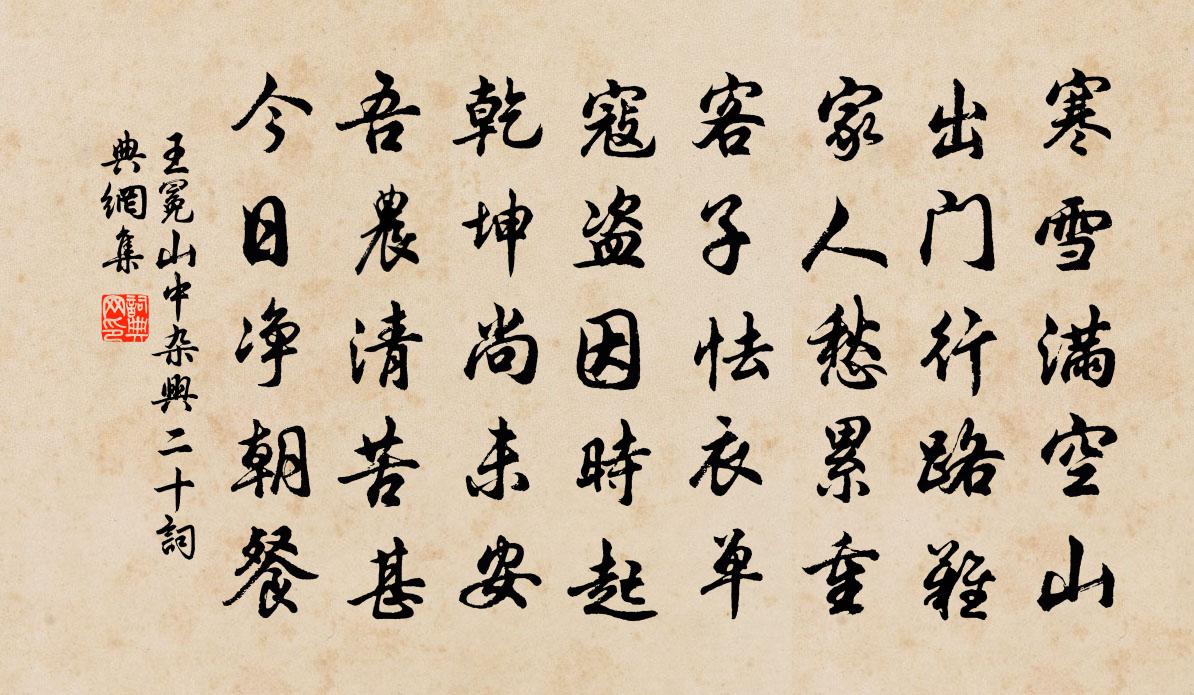 寒雪满空山
出门行路难
家人愁累重
客子怯衣单
寇盗因時起
乾坤尚未安
吾農清苦甚
今日净朝餐
王冕山中杂興二十詞
典網集
詞典网印